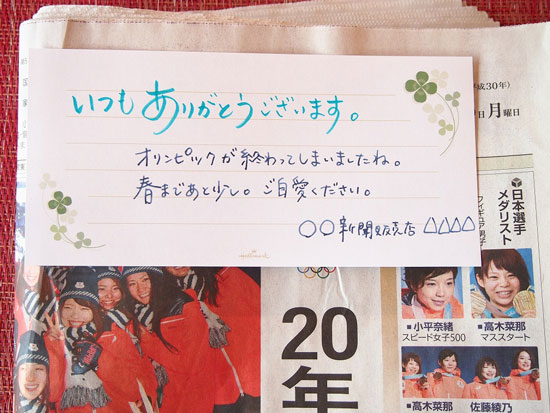 いつもありがとうございます。
オリンピックが終わってしまいましたね。
春まであと少し。ご自愛ください。
〇〇新聞販売店 △△△△
Hallmark
成30年)
月曜日
日本選手
メダリスト
フィギュア男子
■小平奈緒
スピード女子500
■高木菜那
マススタート
20
年
■高木菜那
佐藤綾乃